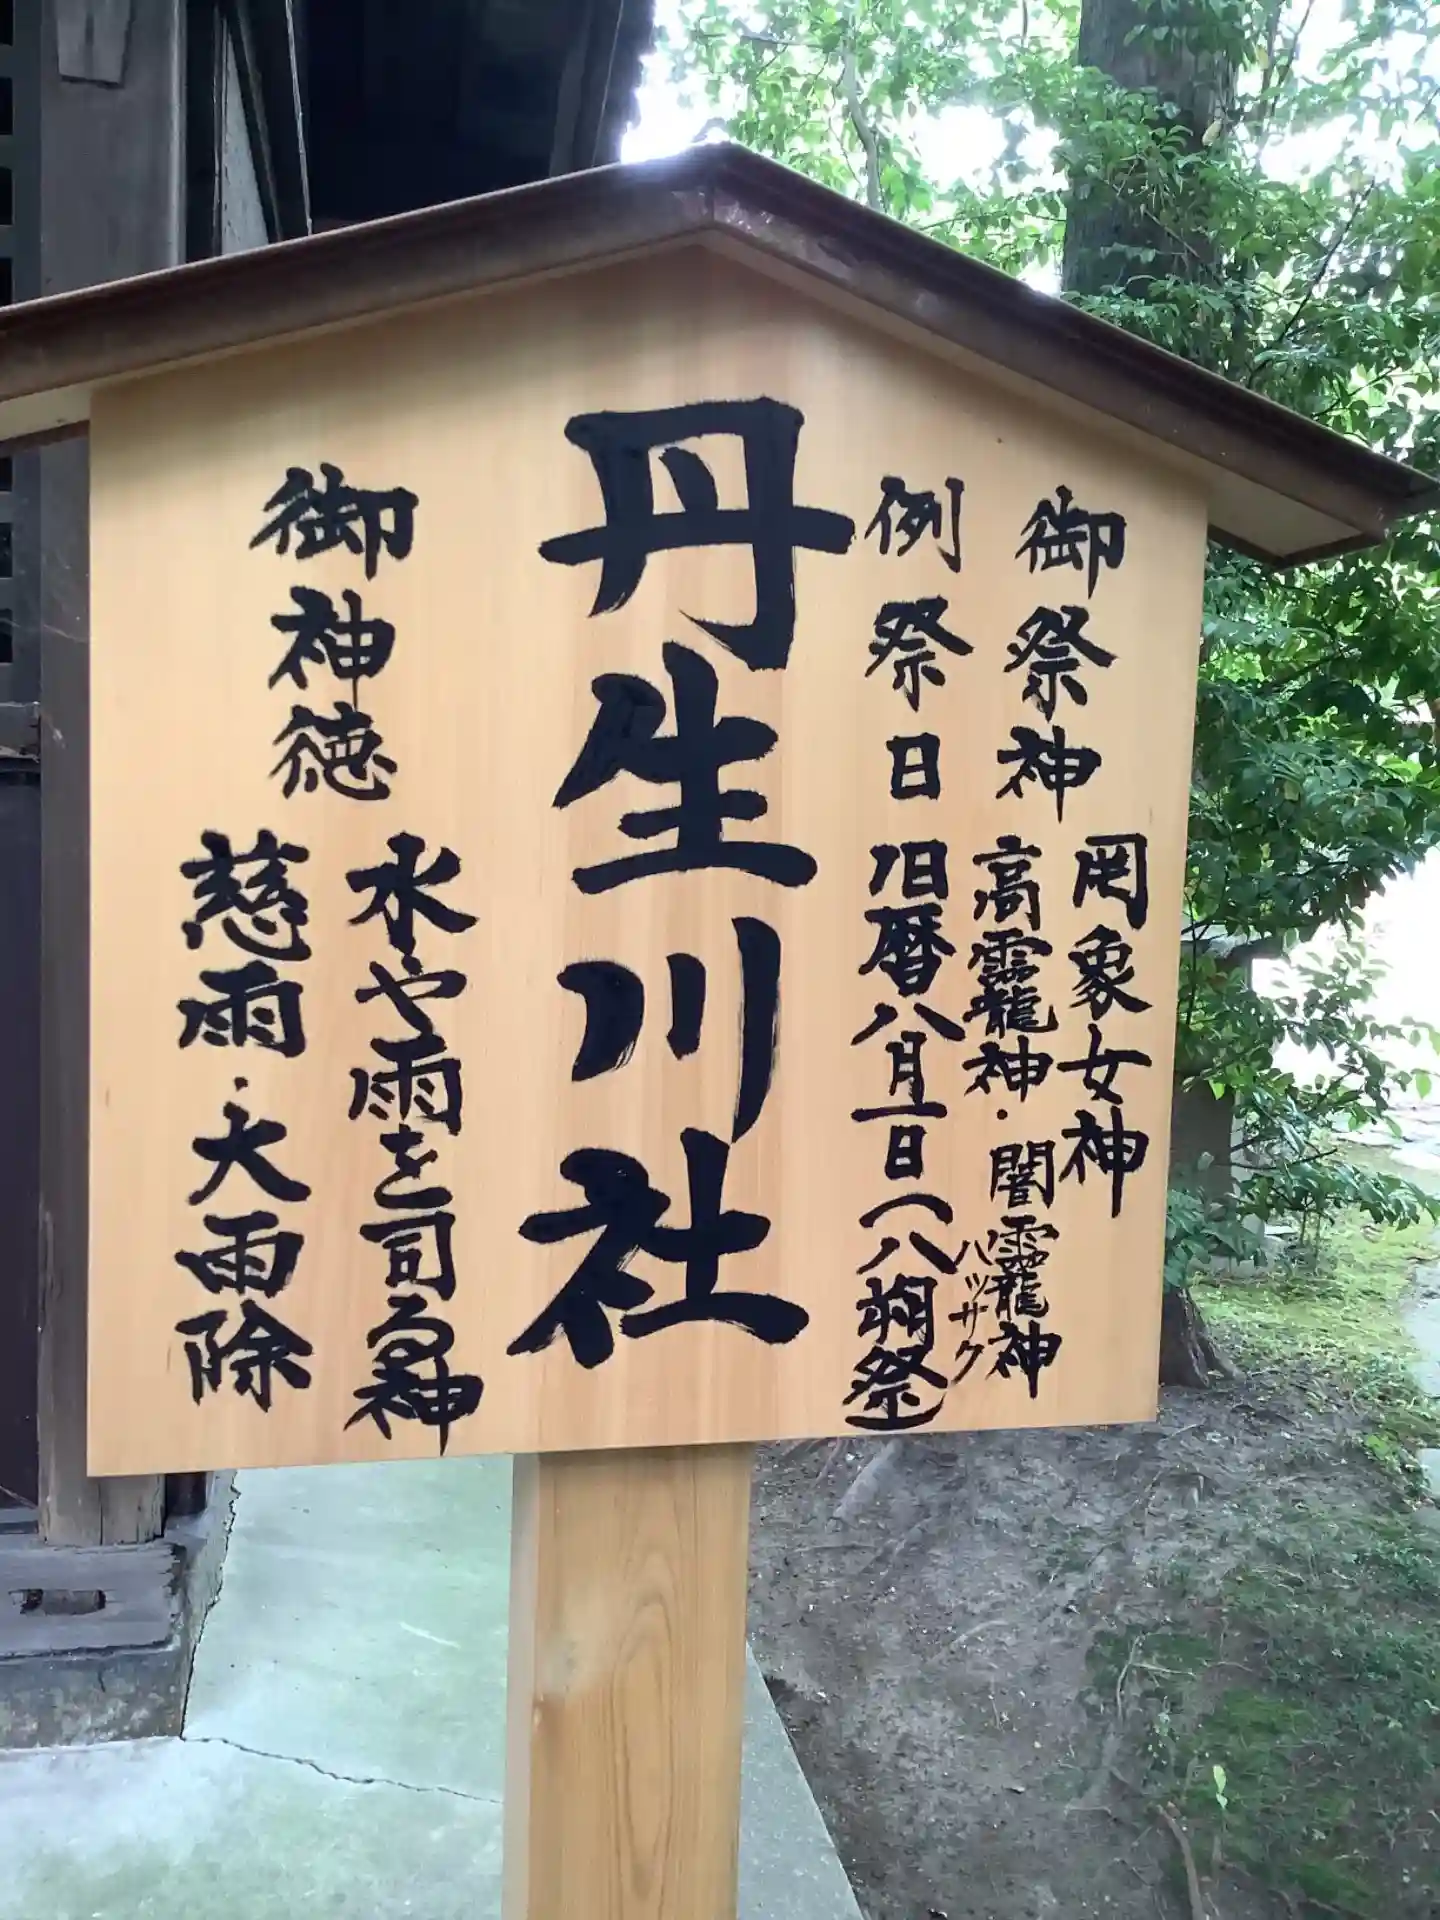 御祭神
罔象女神
高龗神・闇龗神
例祭日
旧暦八月一日(八朔祭)
ハッサク
丹生川社
御神徳
水や雨を司る神
慈雨・大雨除